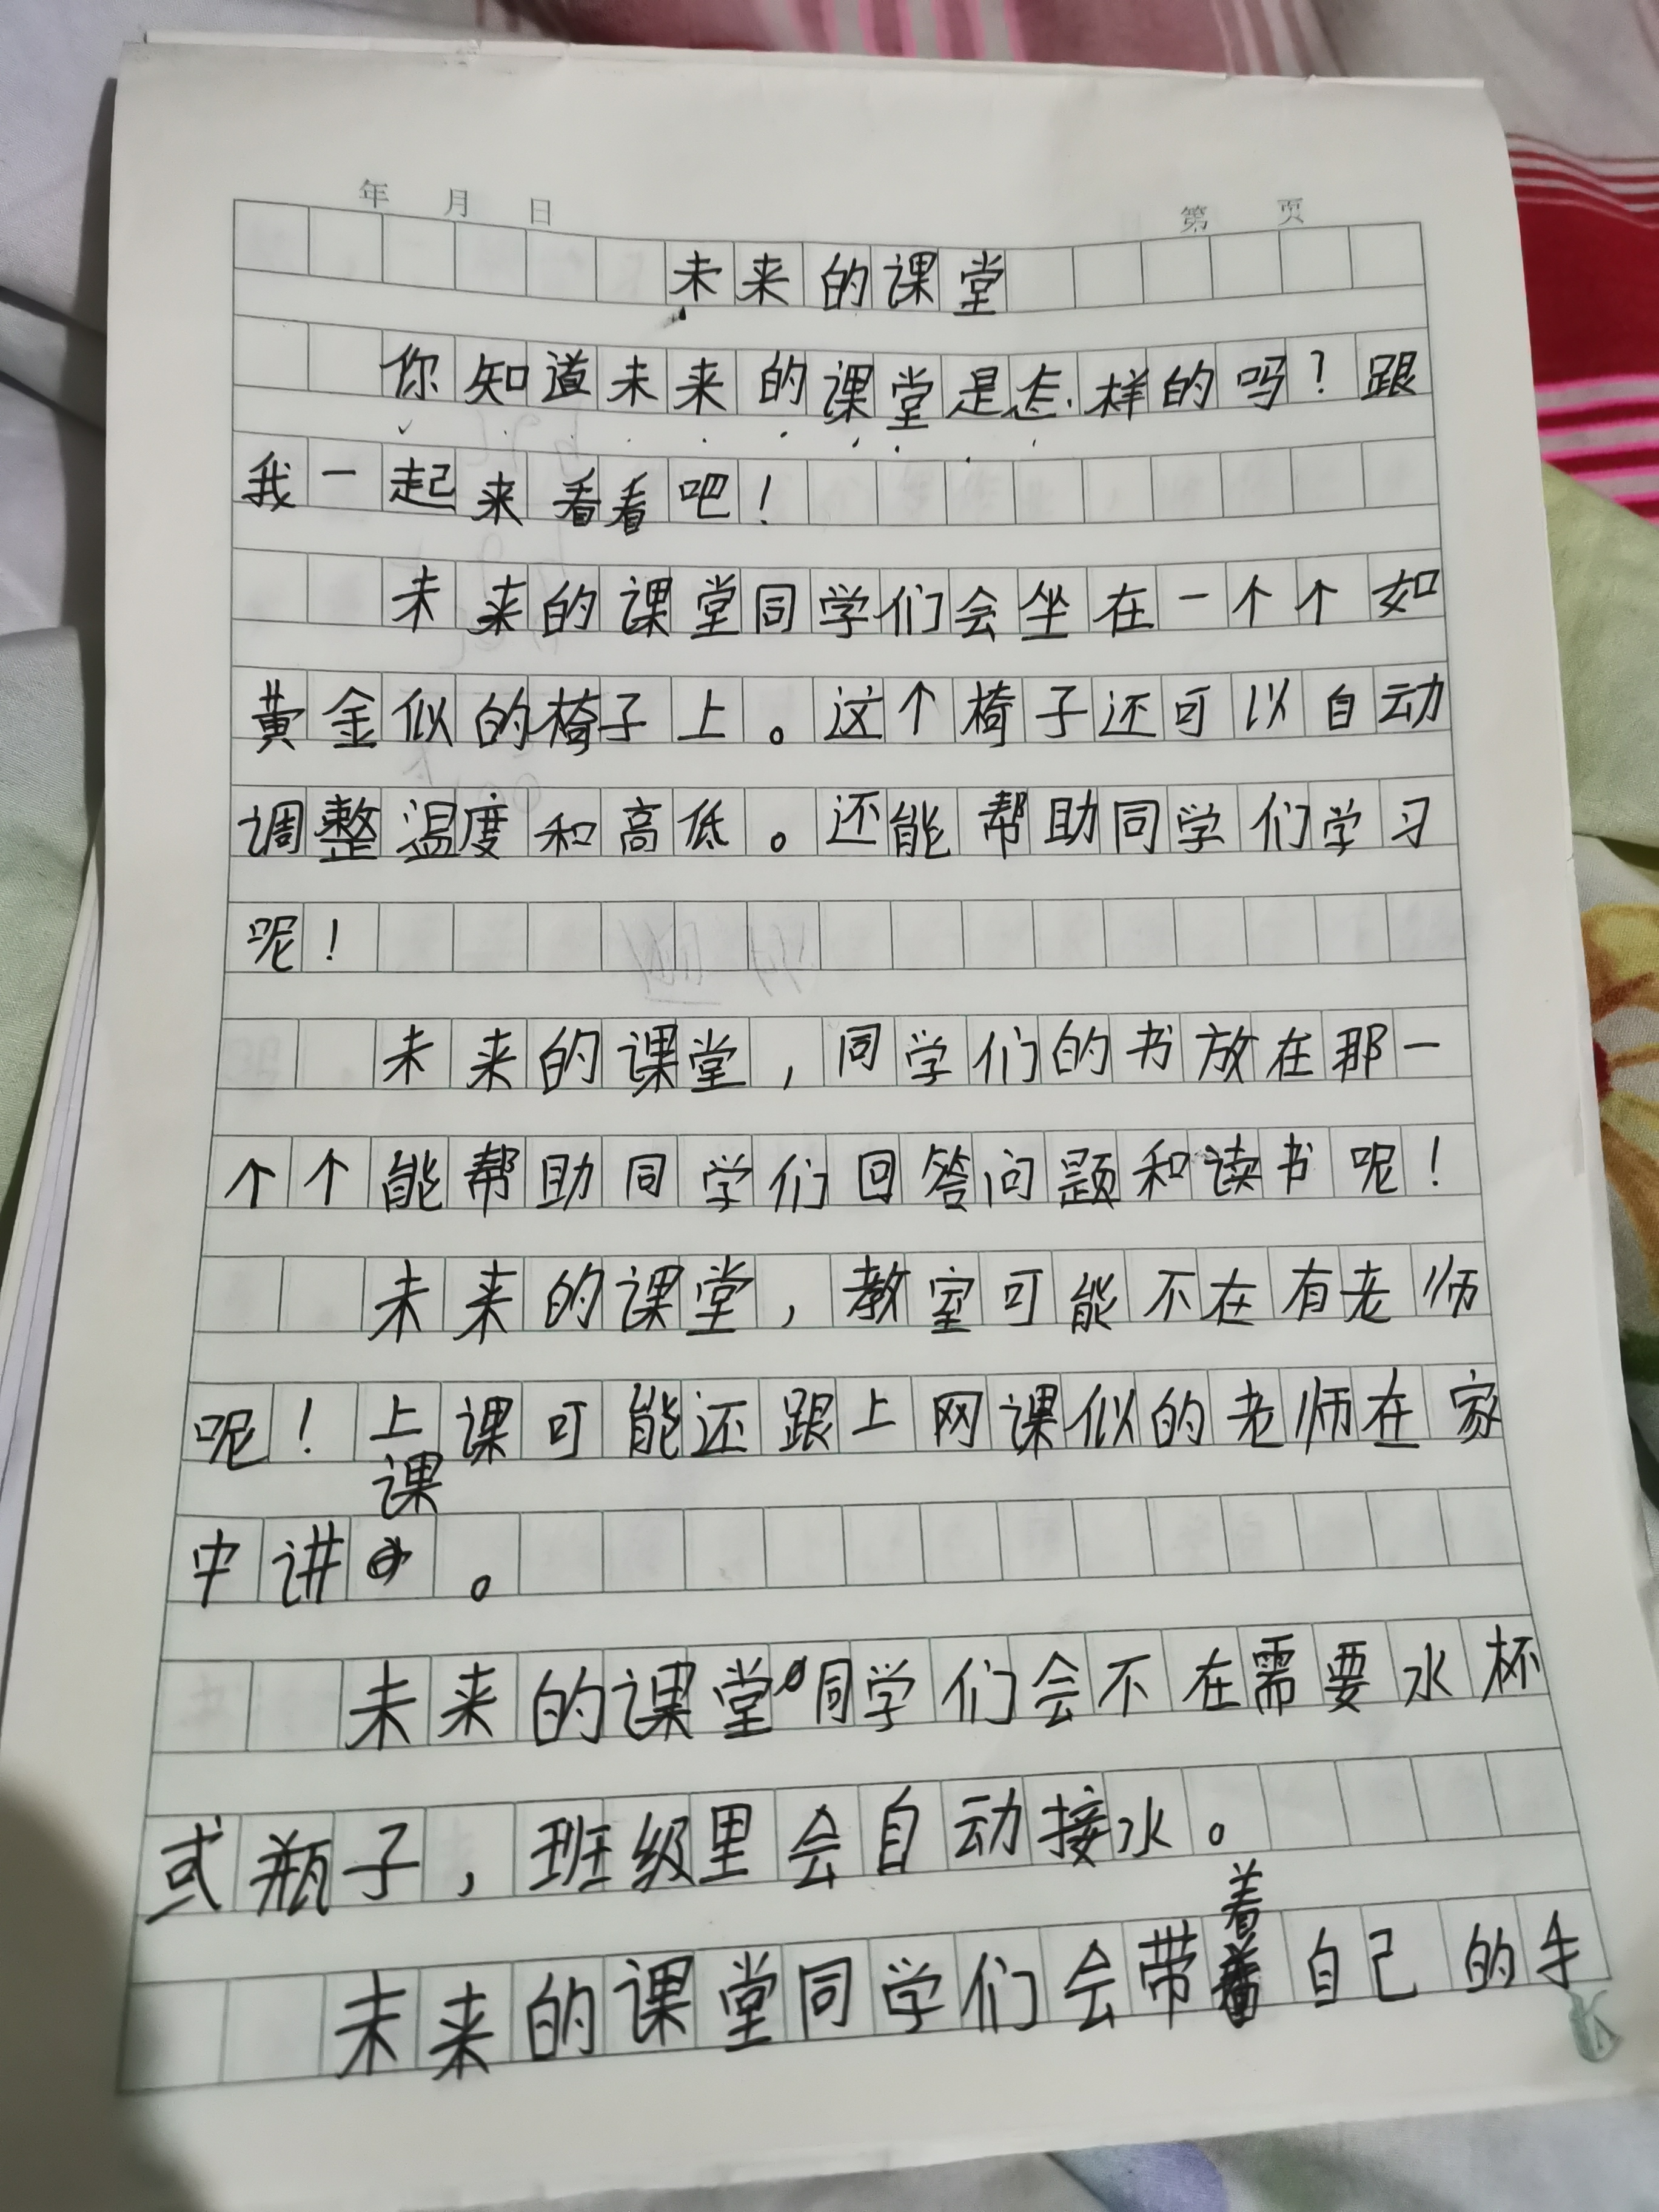 年 月 日 第 页
未来的课堂
你知道未来的课堂是怎样的吗？跟
我一起来看看吧！
未来的课堂同学们会坐在一个个如
黄金似的椅子上。这个椅子还可以自动
调整温度和高低。还能帮助同学们学习
呢！
未来的课堂，同学们的书放在那一
个个能帮助同学们回答问题和读书呢！
未来的课堂，教室可能不在有老师
呢！上课可能还跟上网课似的老师在家
中讲课。
未来的课堂同学们会不在需要水杯
或瓶子，班级里会自动接水。
未来的课堂同学们会带着自己的手